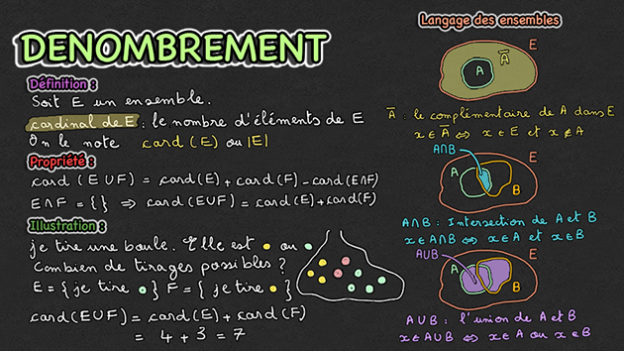 DENOMBREMENT
Définition :
Soit E un ensemble.
cardinal de E : le nombre d'éléments de E
On le note card (E) ou |E|
Propriété :
card (E ∪ F) = card(E) + card(F) - card(E∩F)
E∩F = { } ⇒ card(E∪F) = card(E) + card(F)
Illustration :
je tire une boule. Elle est ou
Combien de tirages possibles ?
E = { je tire } F = { je tire }
card(E∪F) = card(E) + card(F)
= 4 + 3 = 7
Langage des ensembles
E
A̅
A
A̅ : le complémentaire de A dans E
x ∈ A̅ ⇔ x ∈ E et x ∉ A
A∩B
E
A
B
A∩B : Intersection de A et B
x ∈ A∩B ⇔ x ∈ A et x ∈ B
A∪B
E
A
B
A∪B : l'union de A et B
x ∈ A∪B ⇔ x ∈ A ou x ∈ B